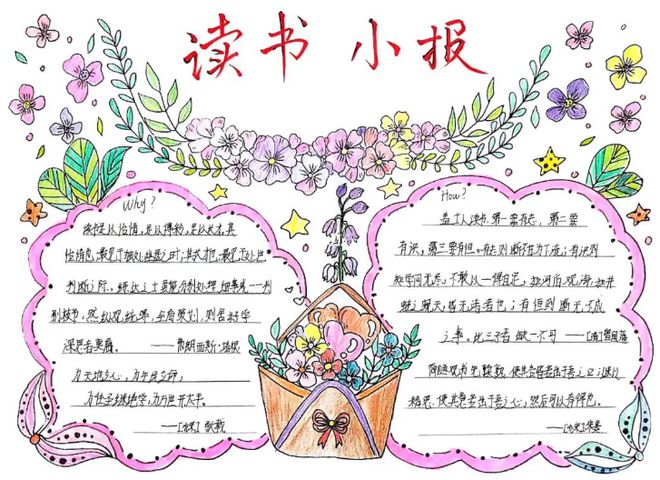 读书小报
Why?
读书足以怡情，足以傅彩，足以长才。其
怡情也，最见于独处幽居之时；其傅彩也，最见于
高谈阔论之中；其长才也，最见于处世
判断之际。练达之士虽能分别处理细事或一一判
别枝节，然纵观统筹，全局策划，则舍好学
深思者莫属。——弗朗西斯·培根
为天地立心，为生民立命，
为往圣继绝学，为万世开太平。
——[北宋]张载
How?
盖士人读书，第一要有志，第二要
有识，第三要有恒。有志则断不甘为下流；有识则
知学问无尽，不敢以一得自足，如河伯观海，如井
蛙窥天，皆无识者也；有恒则断无不成
之事。此三者缺一不可——[清]曾国藩